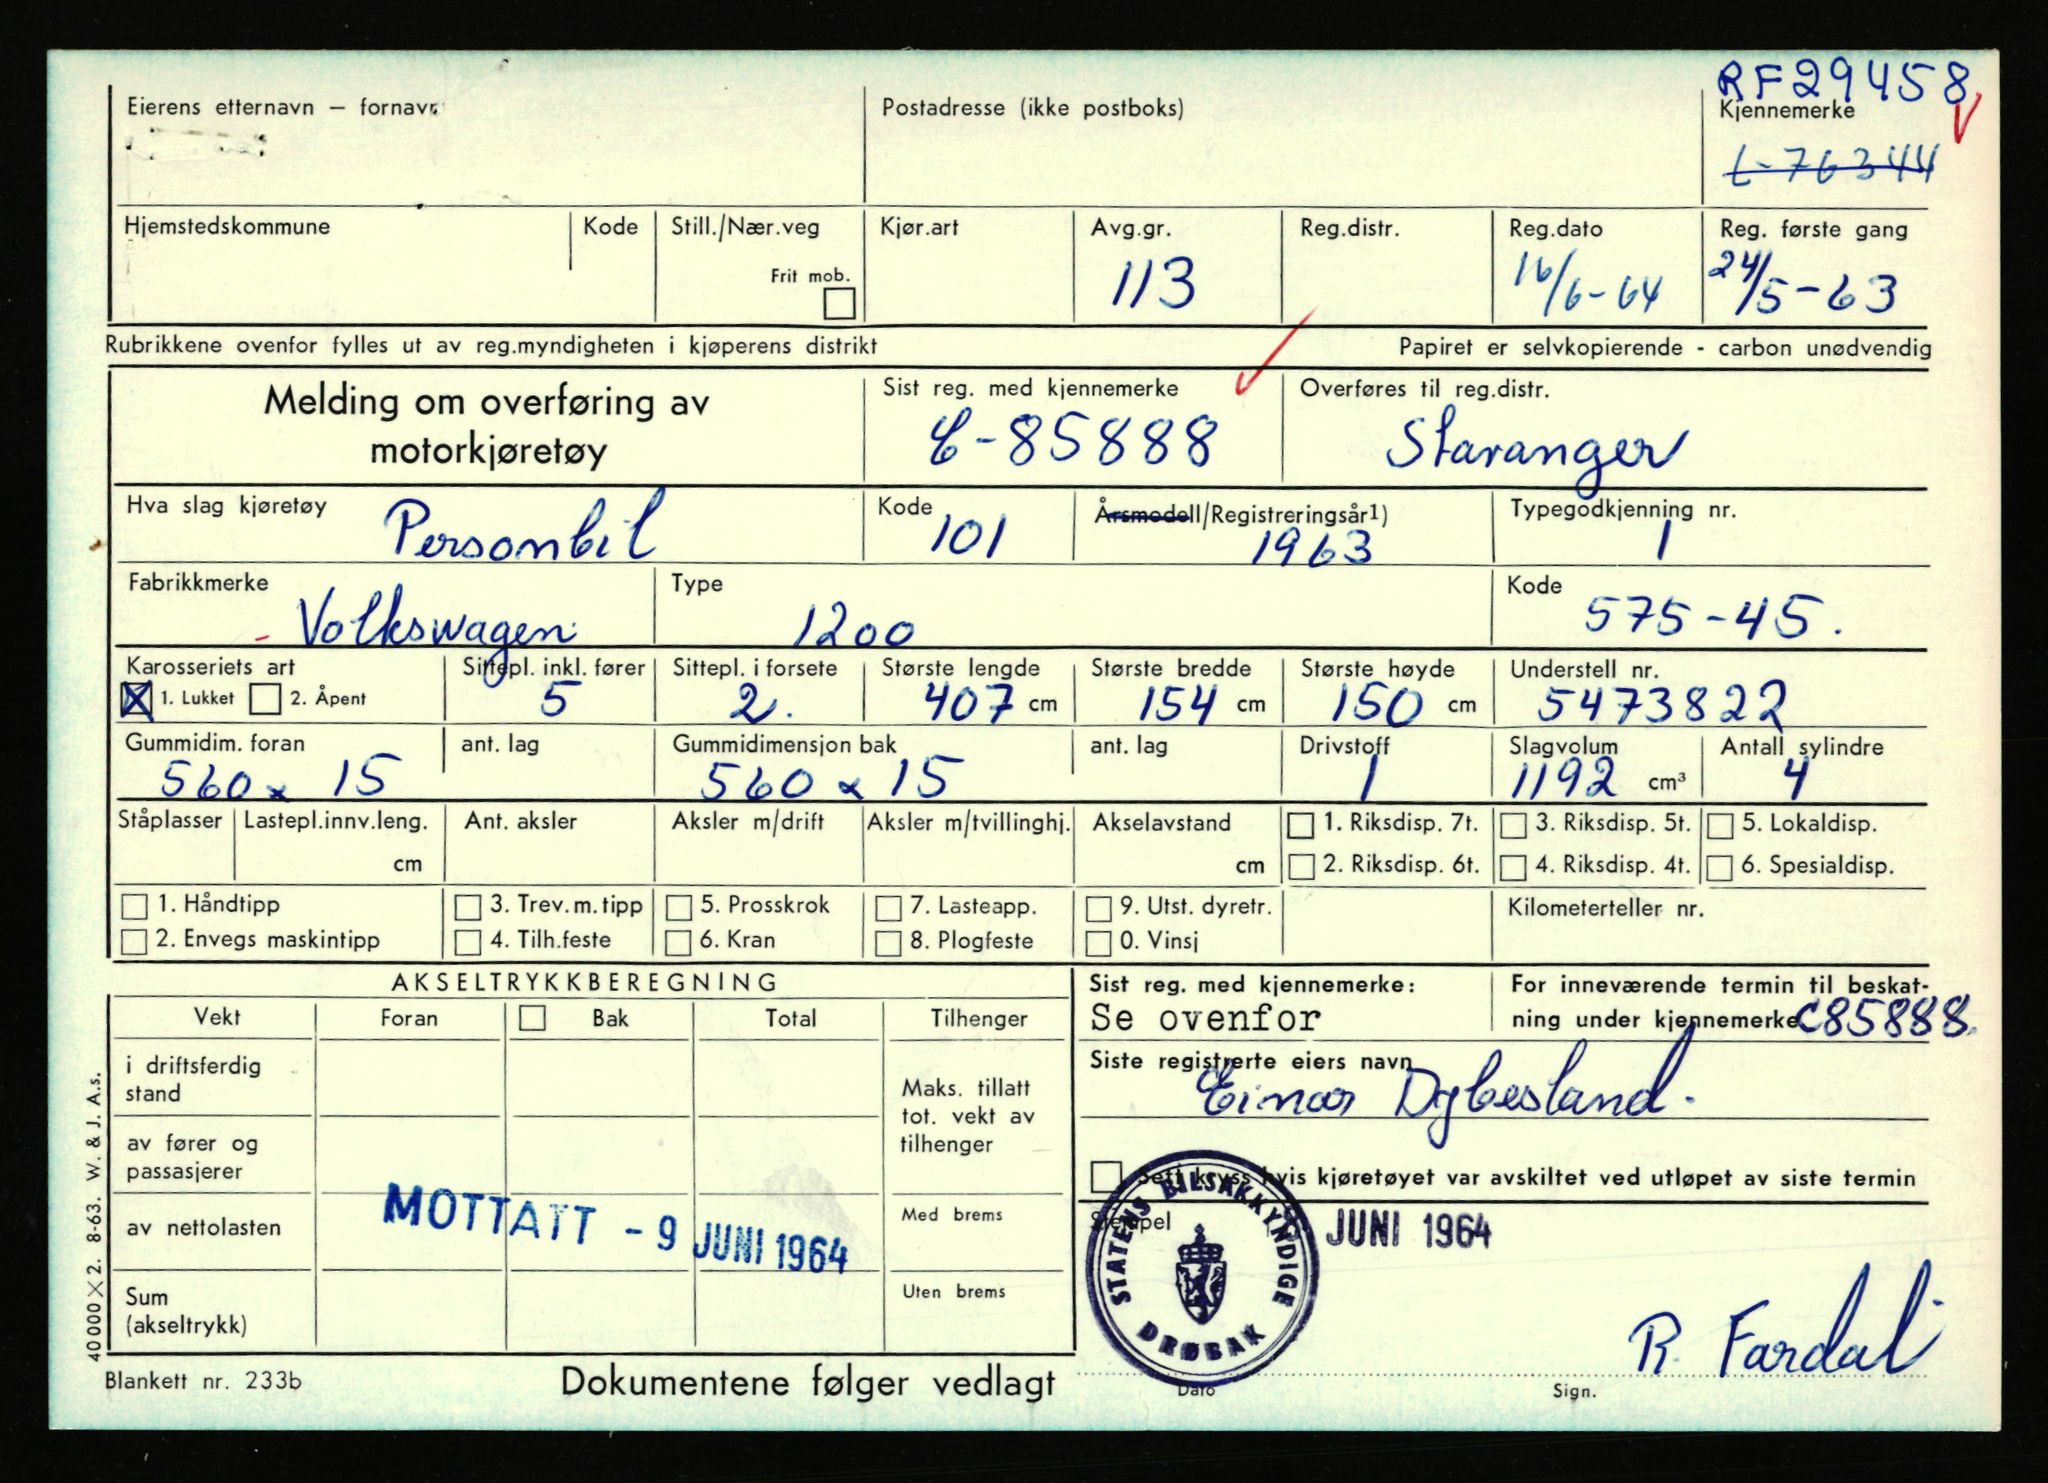 RF29458
Eierens etternavn – fornavn
Postadresse (ikke postboks)
Kjennemerke
L-76344
Hjemstedskommune
Kode
Still./Nær.veg
Frit mob.
Kjør.art
Avg.gr.
113
Reg.distr.
Reg.dato
16/6-64
Reg. første gang
24/5-63
Rubrikkene ovenfor fylles ut av reg.myndigheten i kjøperens distrikt
Papiret er selvkopierende - carbon unødvendig
Melding om overføring av
motorkjøretøy
Sist reg. med kjennemerke
C-85888
Overføres til reg.distr.
Stavanger
Hva slag kjøretøy
Personbil
Kode
101
Årsmodell/Registreringsår1)
1963
Typegodkjenning nr.
1
Fabrikkmerke
Volkswagen
Type
1200
Kode
575-45.
Karosseriets art
1. Lukket 2. Åpent
Sittepl. inkl. fører
5
Sittepl. i forsete
2.
Største lengde
407 cm
Største bredde
154 cm
Største høyde
150 cm
Understell nr.
5473822
Gummidim. foran
560 x 15
ant. lag
Gummidimensjon bak
560 x 15
ant. lag
Drivstoff
1
Slagvolum
1192 cm³
Antall sylindre
4
Ståplasser
Lastepl.innv.leng.
cm
Ant. aksler
Aksler m/drift
Aksler m/tvillinghj.
Akselavstand
cm
1. Riksdisp. 7t.
2. Riksdisp. 6t.
3. Riksdisp. 5t.
4. Riksdisp. 4t.
5. Lokaldisp.
6. Spesialdisp.
1. Håndtipp
2. Envegs maskintipp
3. Trev.m.tipp
4. Tilh.feste
5. Prosskrok
6. Kran
7. Lasteapp.
8. Plogfeste
9. Utst. dyretr.
0. Vinsj
Kilometerteller nr.
AKSELTRYKKBEREGNING
Vekt
Foran
Bak
Total
Tilhenger
i driftsferdig
stand
av fører og
passasjerer
av nettolasten
Sum
(akseltrykk)
Maks. tillatt
tot. vekt av
tilhenger
Med brems
Uten brems
MOTTATT - 9 JUNI 1964
Sist reg. med kjennemerke:
Se ovenfor
For inneværende termin til beskat-
ning under kjennemerke C85888.
Siste registrerte eiers navn
Einar Dybesland.
Sett kryss hvis kjøretøyet var avskiltet ved utløpet av siste termin
Stempel
JUNI 1964
STATENS BILSAKKYNDIGE
DRØBAK
R. Fardal
Dato
Sign.
40 000 X 2. 8-63. W. & J. A.s.
Blankett nr. 233b
Dokumentene følger vedlagt